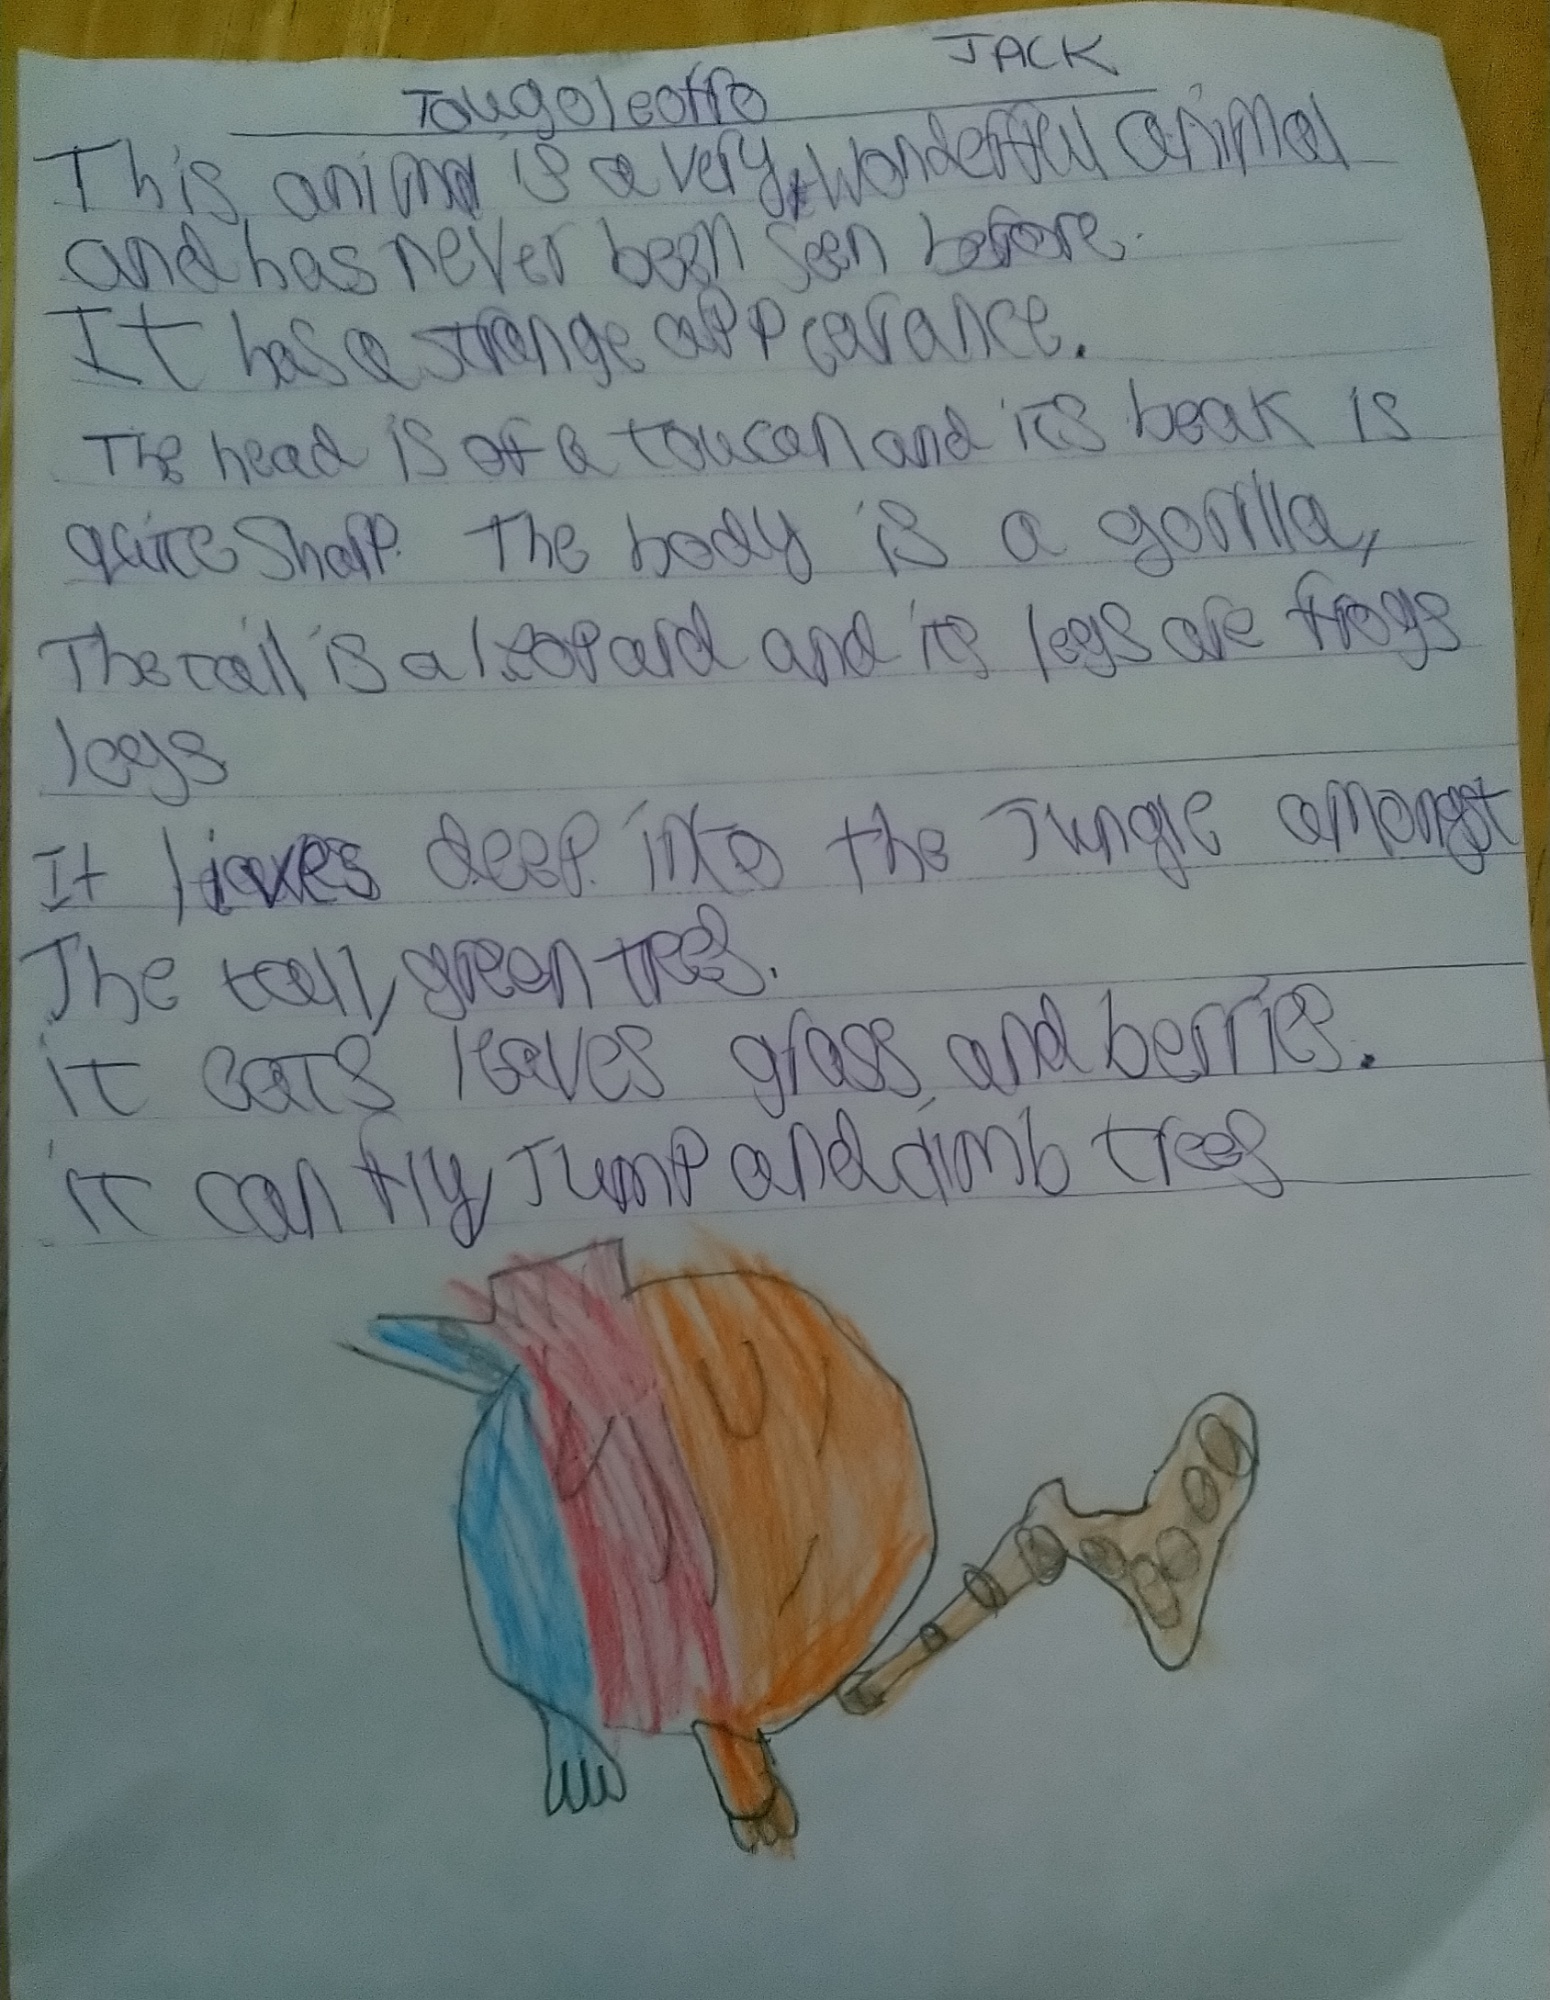 JACK
Tougoleoffo
This animal is a very, wonderful animal
and has never been seen before.
It has a strange appearance.
The head is of a toucan and its beak is
quite sharp. The body is a gorilla,
The tail is a leopard and its legs are frogs
legs
It lives deep into the Jungle amongst
The tall, green trees.
it eats leaves grass and berries.
it can fly, Jump and climb trees